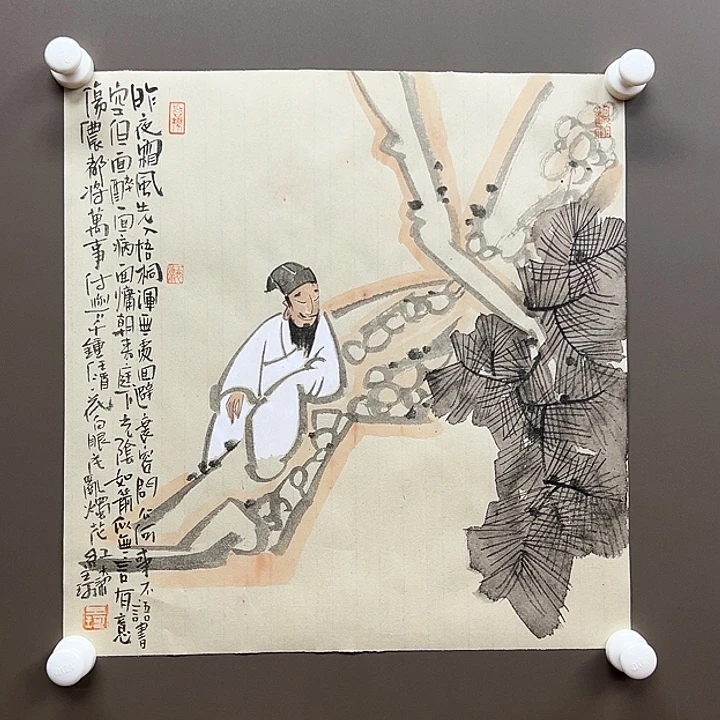 昨夜霜風先入梧桐渾無處回避衰容問公何事不語書
空但一回醉一回病一回慵朝來庭下光陰如箭似無言有意
傷儂都將萬事付與千鍾任酒花白眼花亂燭花
紅